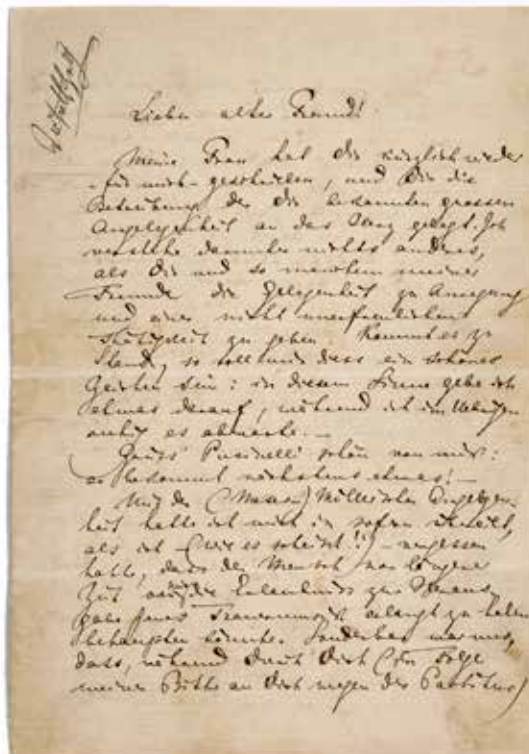 Lieber alter Freund!
Meine Frau hat Dir kürzlich wieder
– für mich – geschrieben, und Dir die
Betreibung der Dir bekannten grossen
Angelegenheit an das Herz gelegt. Ich
verstehe darunter nichts anderes,
als Dir und so manchem meiner
Freunde die Gelegenheit zu Anregung
und einer nicht unerfreulichen
Thätigkeit zu geben. Kommt es zu
Stande, so soll mir diess ein schönes
Zeichen sein: in diesem Sinne gebe ich
etwas darauf, während ich im Uebrigen
ruhig es abwarte. –
Grüss' Pusinelli schön von mir:
er bekommt nächstens etwas! –
Mit der (Meser) Müller'schen Angelegen-
heit hatte ich mich in sofern übereilt,
als ich – (wie es scheint!!) – vergessen
hatte, dass der Mensch vor längerer
Zeit die Erlaubniss zur Heraus-
gabe jenes Trauermusik erlangt zu haben
behaupten könnte. Sonderbar war nur,
dass, während durch Dich (in Folge
meiner Bitte an Dich wegen der Partitur)